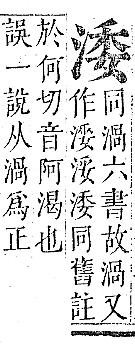 涹
同渦六書故渦又
作浽浽涹同舊註
於何切音阿渴也
誤一說从渦爲正